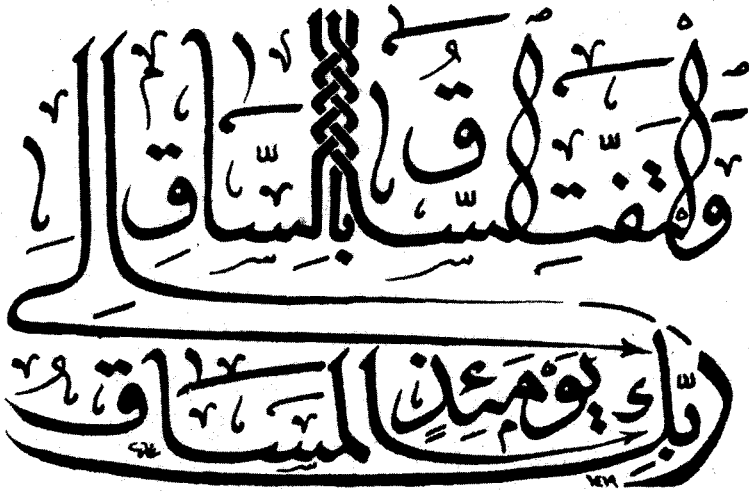 وَالْتَفَّتِ السَّاقُ بِالسَّاقِ إِلَى
رَبِّكَ يَوْمَئِذٍ الْمَسَاقُ